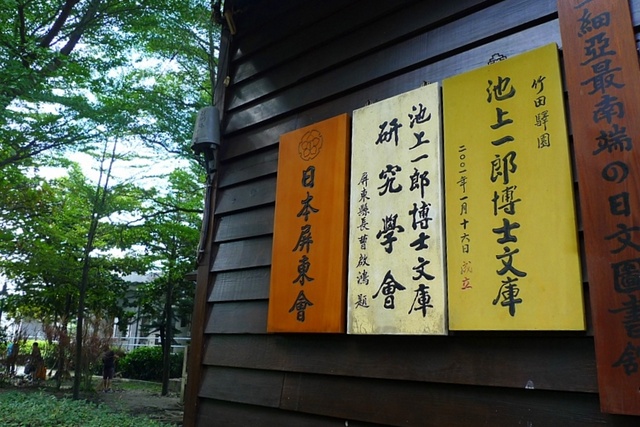 細亞最南端の日文圖書館
竹田驛園
池上一郎博士文庫
二〇〇一年一月十六日成立
池上一郎博士文庫
研究學會
屏東縣長曹啟鴻題
日本屏東會